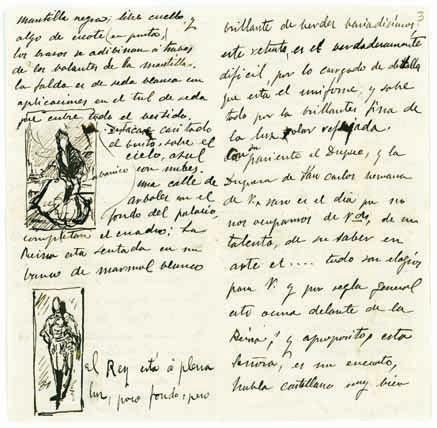 mantilla negra; libre cuello y
algo de escote (en punto)
los brazos se adivinan á traves
de los volantes de la mantilla.
La falda es de seda blanca con
aplicaciones en el tul de seda
que cubre todo el vestido.
Destacase casi todo
el busto sobre el
cielo, azul
con nubes.
una calle de
arboles en el
fondo del palacio
completan el cuadro; La
Reina está sentada en un
banco de marmol blanco
el Rey está á plena
luz, poco fondo, pero
3
brillante de verdes variadisimos,
este retrato, es el verdaderamente
dificil, por lo cargado de detalla
que esta el uniforme, y sobre
todo por la brillantes fisna de
la luz solar reflejada.
Con su pariente el Duque, y la
Duquesa de San Carlos hermana
de V. raro es el dia que no
nos ocupamos de Vds, de su
talento, de su saber en
arte el.... todo son elogios
para V. y por regla general
esto ocurre delante de la
Reina, y apropósito, esta
Señora, es un encanto,
habla castellano muy bien